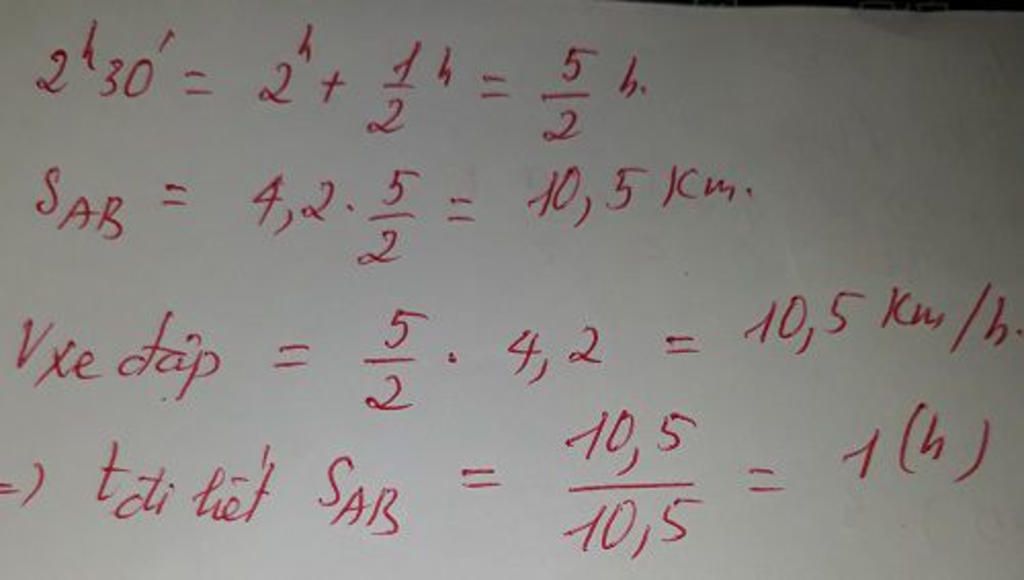 2h30' = 2h + 1/2 h = 5/2 h.
SAB = 4,2 . 5/2 = 10,5 Km.
Vxe đạp = 5/2 . 4,2 = 10,5 Km/h.
=) t đi hết SAB = 10,5/10,5 = 1(h)